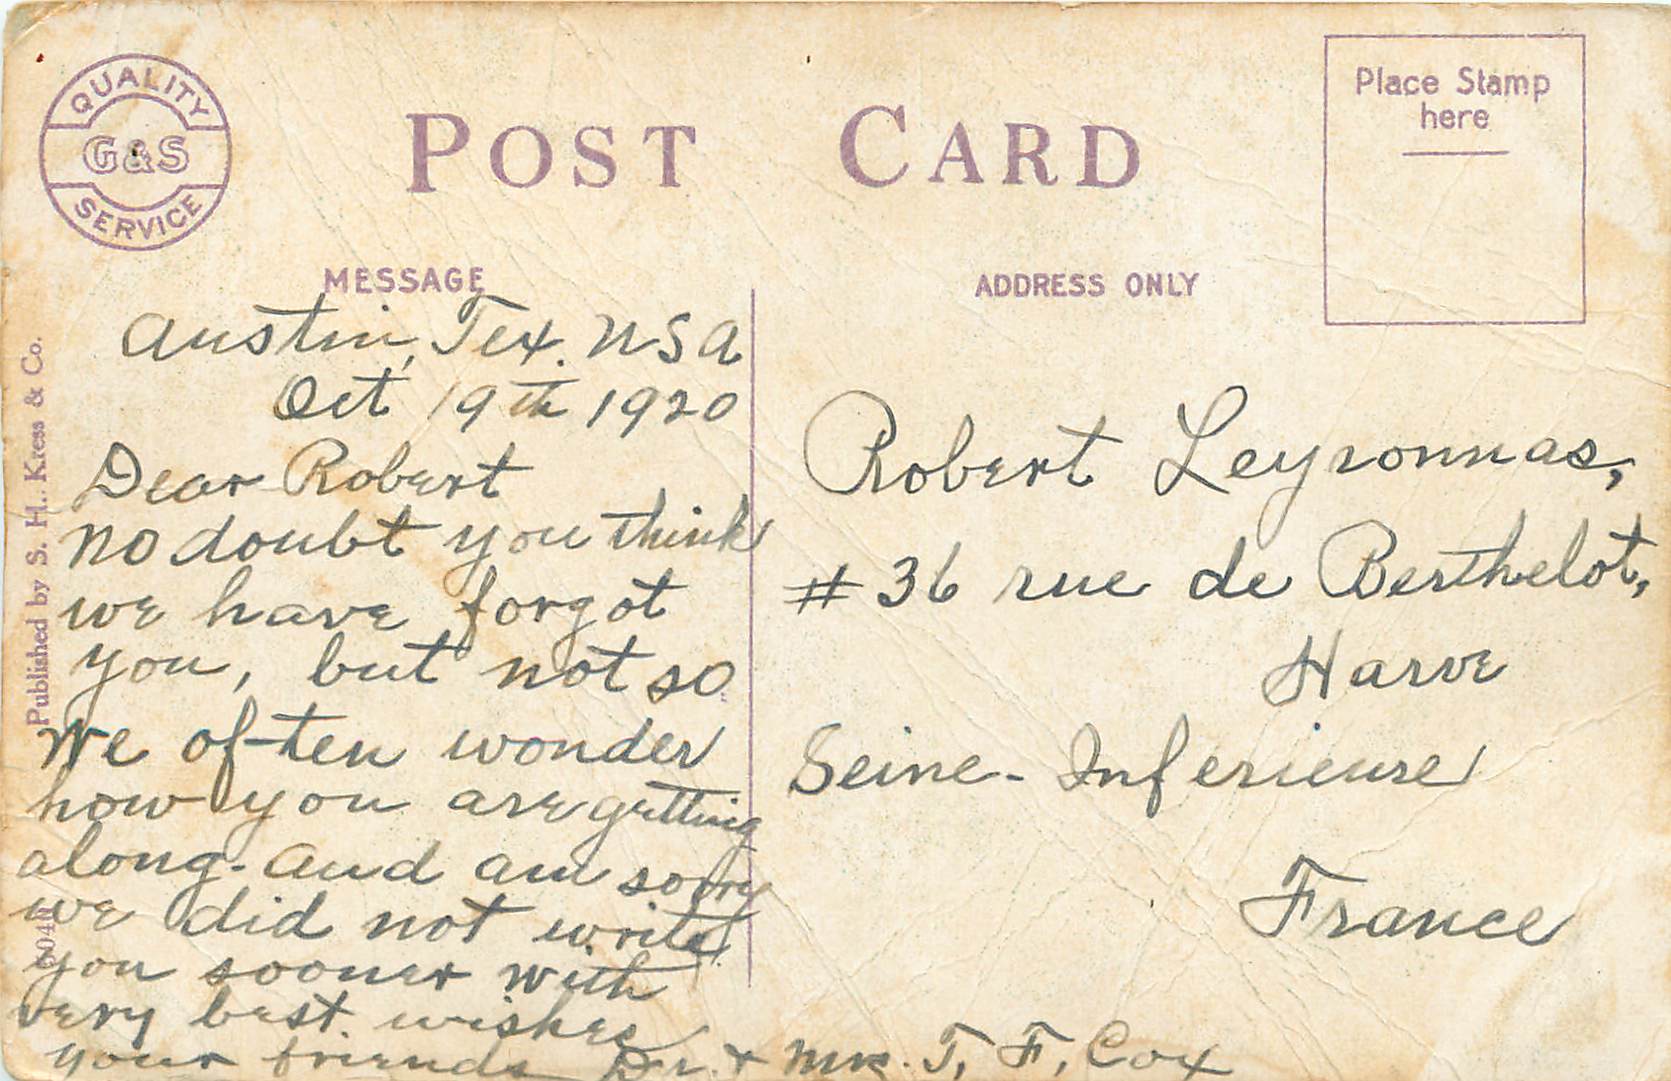 QUALITY
G&S
SERVICE
POST CARD
Place Stamp
here
MESSAGE
ADDRESS ONLY
Published by S. H. Kress & Co.
Austin, Tex. USA
Oct 19th 1920
Dear Robert
no doubt you think
we have forgot
you, but not so
We often wonder
how you are getting
along. and am sorry
we did not write
you sooner with
very best wishes
your friends Dr. & Mrs. T. F. Cox
Robert Leyronnas,
# 36 rue de Berthelot,
Harve
Seine-Inferieure
France